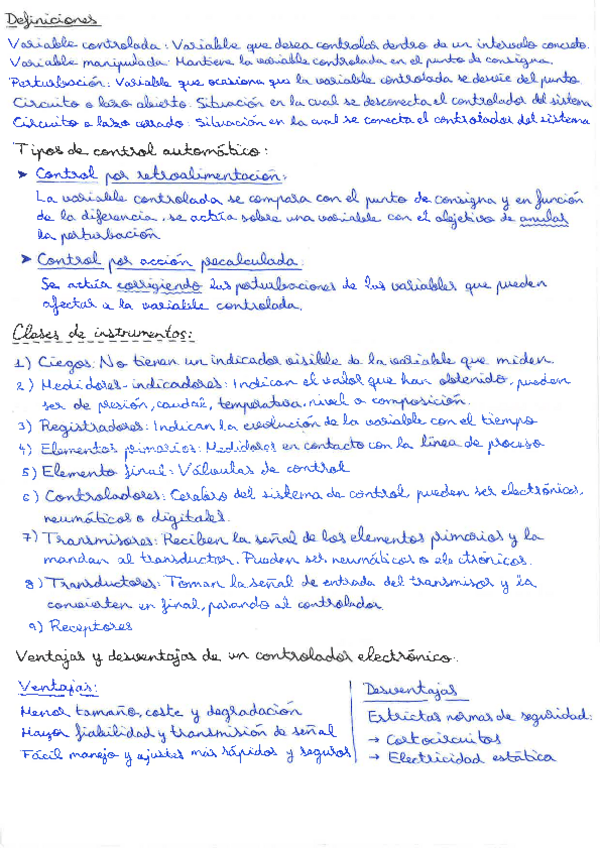 Definiciones
Variable controlada: Variable que desea controlar dentro de un intervalo concreto.
Variable manipulada: Mantiene la variable controlada en el punto de consigna.
Perturbación: Variable que ocasiona que la variable controlada se desvíe del punto.
Circuito o lazo abierto: Situación en la cual se desconecta el controlador del sistema
Circuito o lazo cerrado: Situación en la cual se conecta el controlador del sistema
Tipos de control automático:
➤ Control por retroalimentación:
La variable controlada se compara con el punto de consigna y en función
de la diferencia, se actúa sobre una variable con el objetivo de anular
la perturbación
➤ Control por acción precalculada:
Se actúa corrigiendo las perturbaciones de las variables que pueden
afectar a la variable controlada.
Clases de instrumentos:
1) Ciegos: No tienen un indicador visible de la variable que miden.
2) Medidores-indicadores: Indican el valor que han obtenido, pueden
ser de presión, caudal, temperatura, nivel o composición.
3) Registradores: Indican la evolución de la variable con el tiempo
4) Elementos primarios: Medidores en contacto con la línea de proceso
5) Elemento final: Válvulas de control
6) Controladores: Cerebro del sistema de control, pueden ser electrónicos,
neumáticos o digitales.
7) Transmisores: Reciben la señal de los elementos primarios y la
mandan al transductor. Pueden ser neumáticos o electrónicos.
8) Transductores: Toman la señal de entrada del transmisor y la
convierten en final, pasando al controlador.
9) Receptores
Ventajas y desventajas de un controlador electrónico:
Ventajas:
Menor tamaño, coste y degradación
Mayor fiabilidad y transmisión de señal
Fácil manejo y ajustes más rápidos y seguros
Desventajas
Estrictas normas de seguridad:
→ Cortocircuitos
→ Electricidad estática